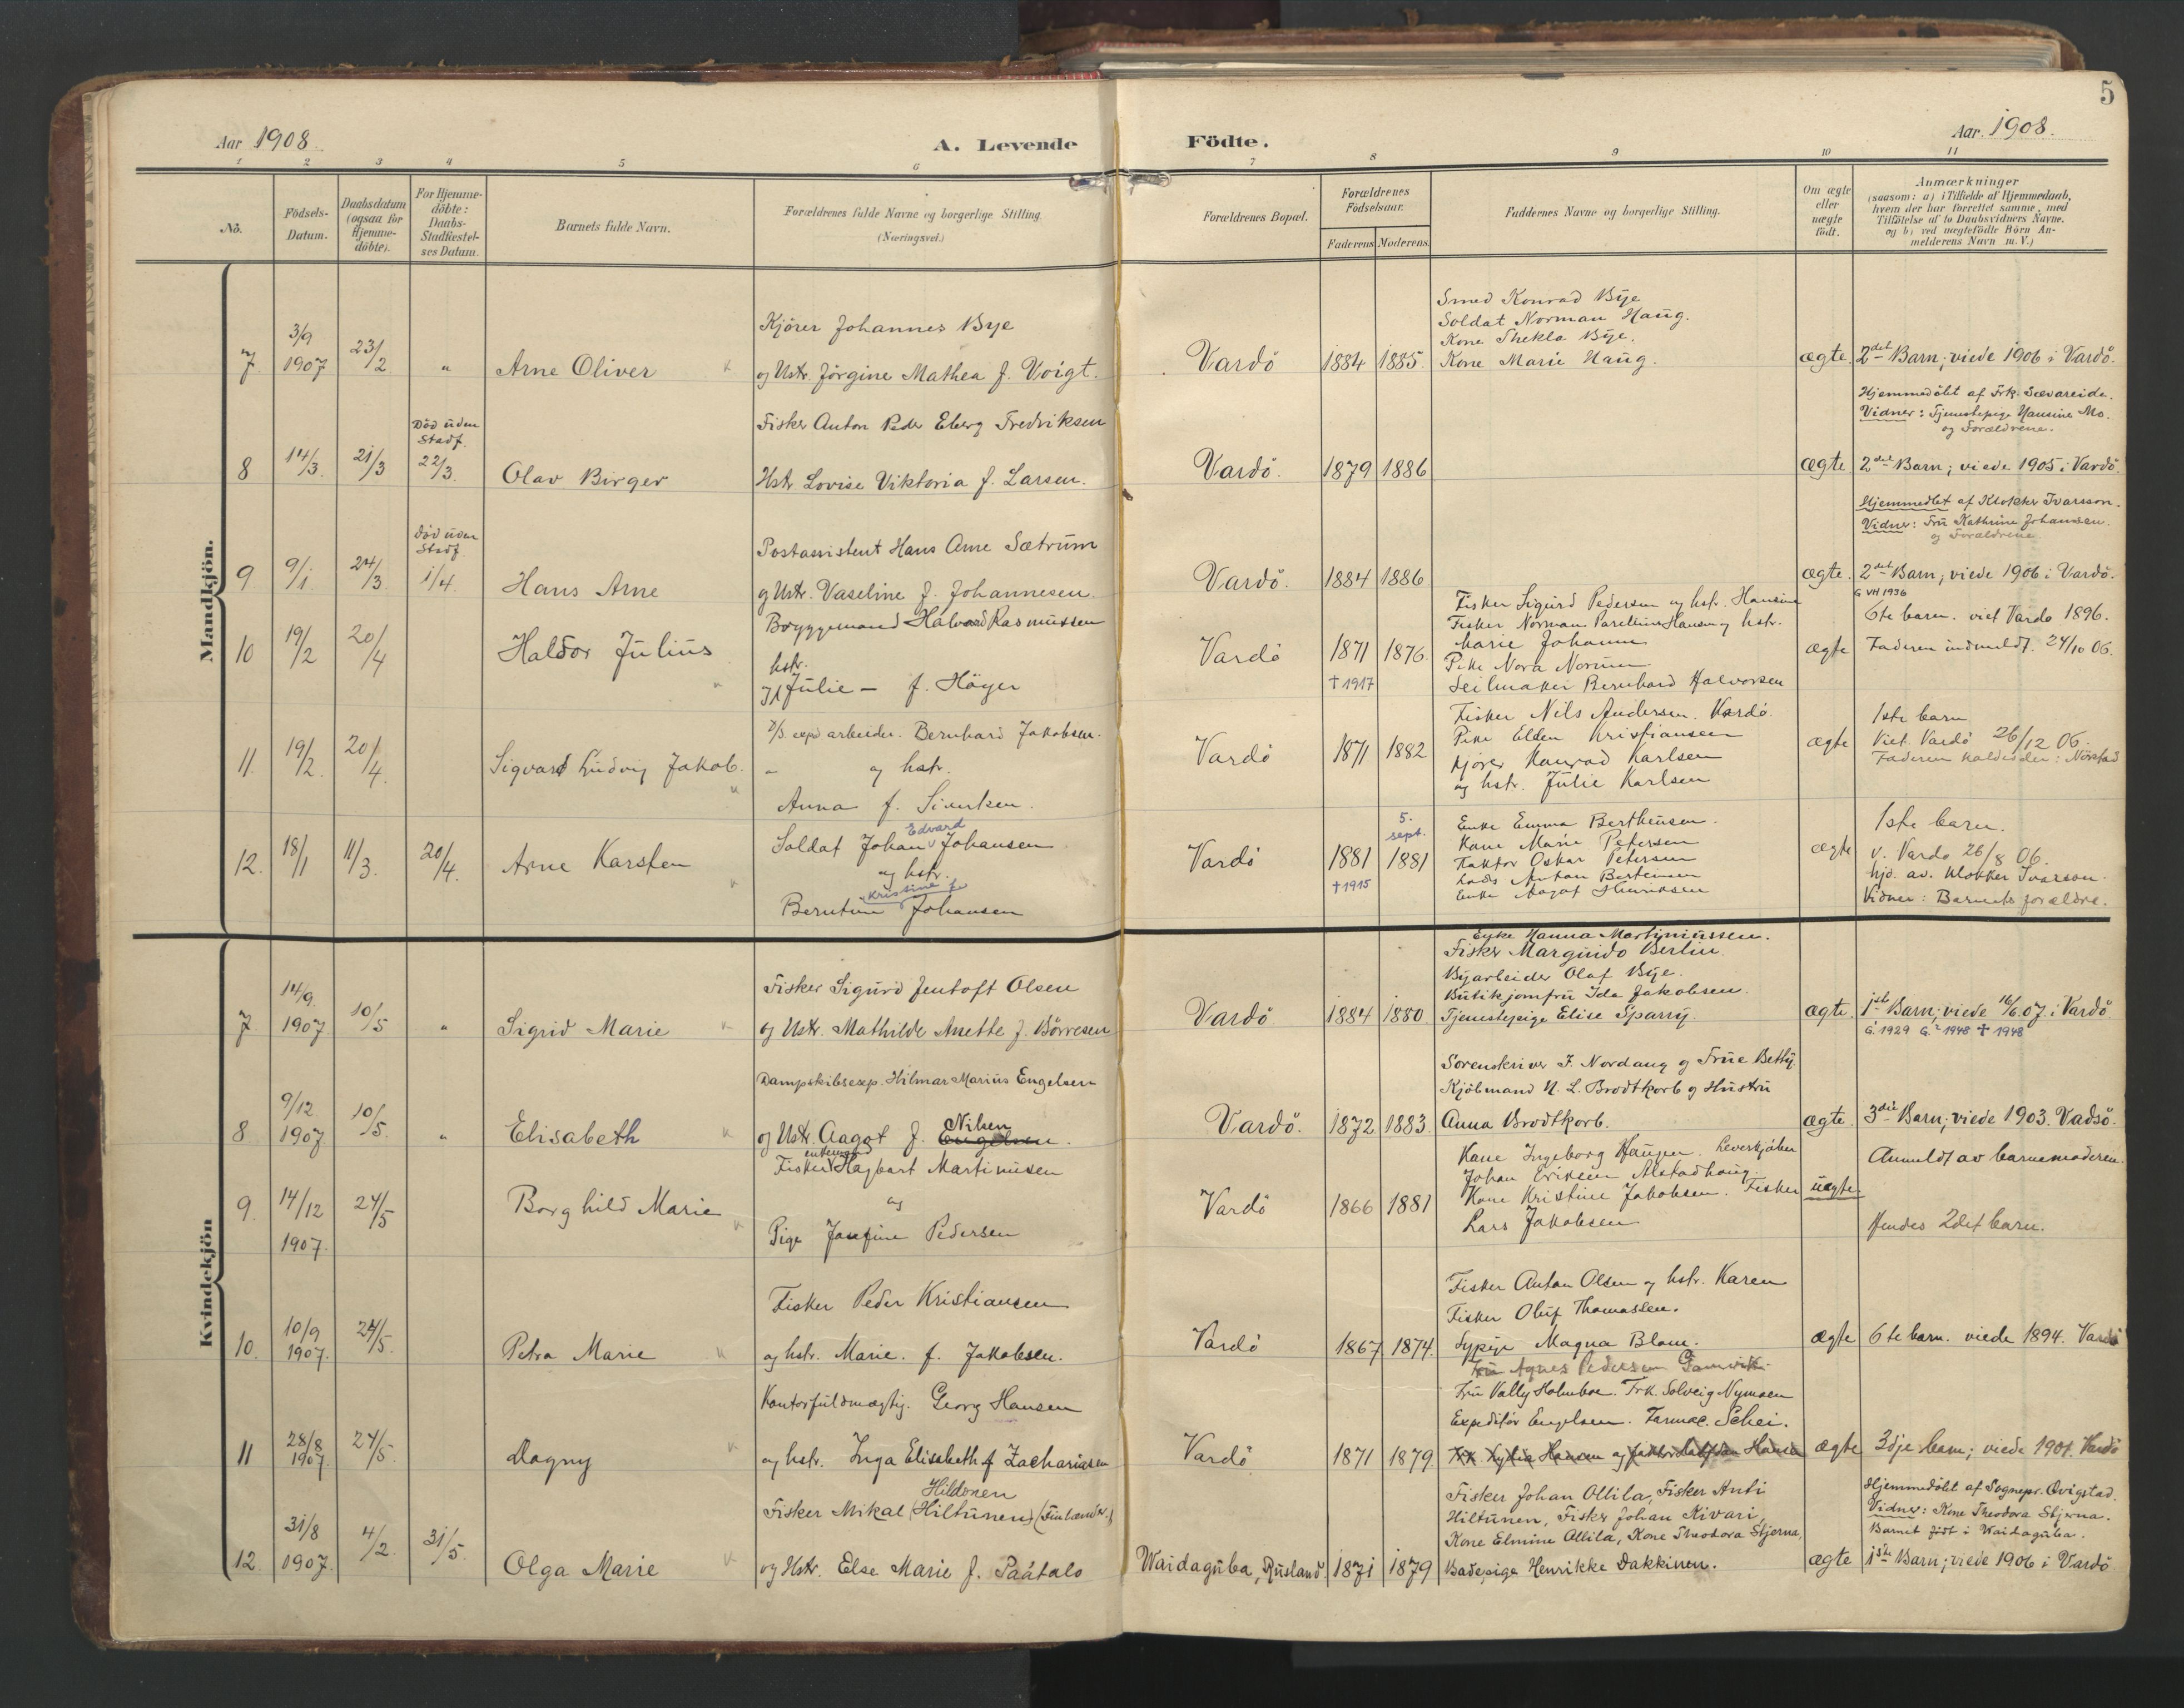 5
Aar 1908.
A. Levende Födte.
Aar. 1908.
1 2 3 4 5 6 7 8 9 10 11
No.
Födsels-Datum.
Daabsdatum (ogsaa for Hjemme-döbte).
For Hjemme-döbte: Daabs-Stadfæstel-ses Datum.
Barnets fulde Navn.
Forældrenes fulde Navne og borgerlige Stilling. (Næringsvei.)
Forældrenes Bopæl.
Forældrenes Födselsaar.
Faderens. Moderens.
Faddernes Navne og borgerlige Stilling.
Om ægte eller uægte födt.
Anmærkninger
(saasom: a) i Tilfælde af Hjemmedaab,
hvem der har forrettet samme, med
Tilföielse af to Daabsvidners Navne.
og b) ved uægtefödte Börn An-
melderens Navn m. V.)
Mandkjön.
7. 3/9 1907 23/2 " Arne Oliver
Kjörer Johannes Bye
og Ustr. Jörgine Mathea f. Voigt.
Vardö 1884 1885.
Smed Konrad Bye
Soldat Norman Haug.
Kone Thekla Bye.
Kone Marie Haug.
ægte. 2det Barn; viede 1906 i Vardö.
8 14/3. 21/3
Död uden
Stadf.
22/3.
Olav Birger
Fisker Anton Peder Eberg Fredriksen
Hstr. Lovise Viktoria f. Larsen.
Vardö. 1879 1886
ægte
Hjemmedöbt af Frk. Sævareide.
Vidner: Tjenestepige Hansine Mo.
og Forældrene.
2det Barn; viede 1905 i Vardö.
9 9/1 24/3.
Död uden
Stadf.
1/4.
Hans Arne
Postassistent Hans Arne Sætrum
og Ustr. Vaseline f. Johannesen.
Vardö. 1884 1886
ægte.
Hjemmedbt af Klokker Ivarsson.
Vidner: Fru Kathrine Johansen.
og Forældrene
2det Barn; viede 1906 i Vardö.
G VH 1936
10 19/2 20/4 Haldor Julius
Bryggemand Halvard Rasmussen
hstr.
Julie — f. Höyer
Vardö 1871 1876.
† 1917
Fisker Sigurd Pedersen og hstr. Hansine
Fisker Norman Hansen og hstr.
Marie Johanne
Pike Nora
Seilmaker Bernhard Halvorsen
ægte
6te barn. viet Vardö 1896.
Faderen indmeldt. 24/10 06.
11. 19/2. 20/4. Sigvard Ludvig Jakob.
arbeider. Bernhard Jakobsen.
" og hstr.
Anna f. Sivertsen.
Vardö 1871 1882
Fisker Nils Andersen. Vardö.
Pike Ellen Kristiansen
Kjörer Konrad Karlsen
og hstr. Julie Karlsen
ægte
1ste barn
Viet. Vardö 26/12 06.
Faderen kalder den: Nörstad
12. 18/1 11/3. 20/4. Arne Karsten
Edvard
Soldat Johan Johansen
og hstr.
Kristine f.
Berntine Johansen
Vardö 1881 † 1915
5. sept. 1881
Enke Emma Bertheusen.
Kone Marie Petersen
Faktor Oskar Petersen
Lods Anton Bertensen
Enke Aagot Henriksen
ægte
1ste barn.
v. Vardö 26/8 06.
hjd. av. Klokker Ivarson.
Vidner: Barnets forældre.
Kvindekjön
7. 14/9. 1907 10/5 " Sigrid Marie
Fisker Sigurd Jentoft Olsen
og Ustr. Mathilde Anette f. Börresen
Vardö 1884 1880
Enke Hanna Martiniussen.
Fisker Margiudo Berlin
Byarbeider Olaf Bye.
Butikjomfru Ida Jakobsen.
Tjenestepige Elise Sparry.
ægte. 1ste Barn; viede 16/6.07. i Vardö
G. 1929 G.2 1948 † 1948
8 9/12 1907 10/5. " Elisabeth
Dampskibsexp. Hilmar Marius Engelsen
og Ustr. Aagot f. Nilsen Engelsen.
Vardö. 1872 1883.
Sorenskriver F. Nordang og Frue Betty.
Kjöbmand U. L. Brodtkorb og Hustru
Anna Brodtkorb.
ægte. 3die Barn; viede 1903. Vadsö.
9. 14/12 1907. 24/5 Borghild Marie
enkemand
Fisker Hagbart Martinusen
og
Pige Josefine Pedersen
Vardö 1866 1881
Kone Ingeborg Haugen. Leverkjöber
Johan Eriksen Alstadhaug.
Kone Kristine Jakobsen. Fisker
Lars Jakobsen
uægte.
Anmeldt av barnemoderen.
Hendes 2det barn.
10. 10/9 1907. 24/5. Petra Marie
Fisker Peder Kristiansen
og hstr. Marie. f. Jakobsen.
Vardö 1867 1874.
Fisker Anton Olsen og hstr. Karen
Fisker Oluf Thomassen.
Sypige Magna Blom.
ægte 6te barn. viede 1894. Vardö
11 28/8 1907. 24/5. Dagny
Kontorfuldmægtig. Georg Hansen
og hstr. Inga Elisebeth f Zachariasen
Vardö 1871 1879.
Fru Agnes Pedersen Gamvik.
Fru Vally Holmboe. Frk. Solveig Nymoen
Expeditör Engelsen. Farmac. Schei.
ægte 3dje barn; viede 1901. Vardö
12. 31/8 1907. 4/2. 31/5. Olga Marie
Hildonen
Fisker Mikal (Hiltunen) (Finlænder.)
og Ustr. Else Marie f. Paátalo
Waidaguba, Rusland. 1871 1879
Fisker Johan Ollila, Fisker Anti
Hiltunen, Fisker Johan Kivari,
Kone Elmine Ollila, Kone Theodora Stjerna,
Badepige Henrikke Dakkinen.
ægte
Hjemmedöbt af Sognepr. Qvigstad.
Vidner: Kone Theodora Stjerna.
Barnet födt i Waidaguba.
1ste Barn; viede 1906 i Vardö